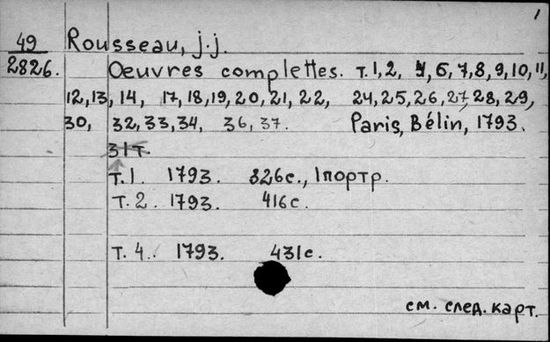 1
49 Rousseau, j.j.
2826. Oeuvres complettes. т.1,2, 4,6,7,8,9,10,11,
12,13,14, 17,18,19,20,21,22, 24,25,26,27,28,29,
30, 32,33,34, 36,37. Paris, Bélin, 1793.
31т.
т.1. 1793. 326с., 1портр.
т.2. 1793. 416с.
т.4. 1793. 431с.
см. след. карт.